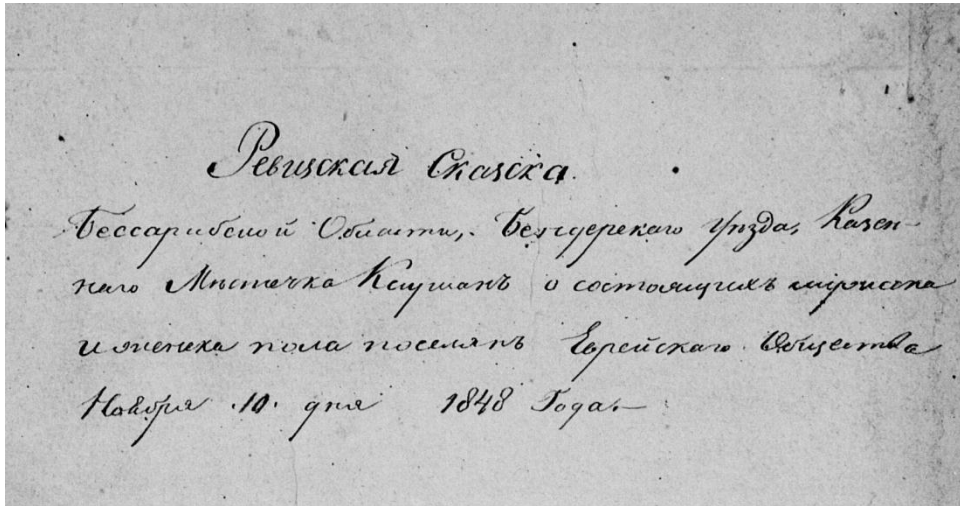 Ревизская Сказска.
Бессарабской Области, Бендерскаго Уѣзда, Казен-
наго Мѣстечка Каушанъ о состоящихъ мужеска
и женска пола поселянъ Еврейскаго Общества
Ноября 10. дня 1848 Года.—